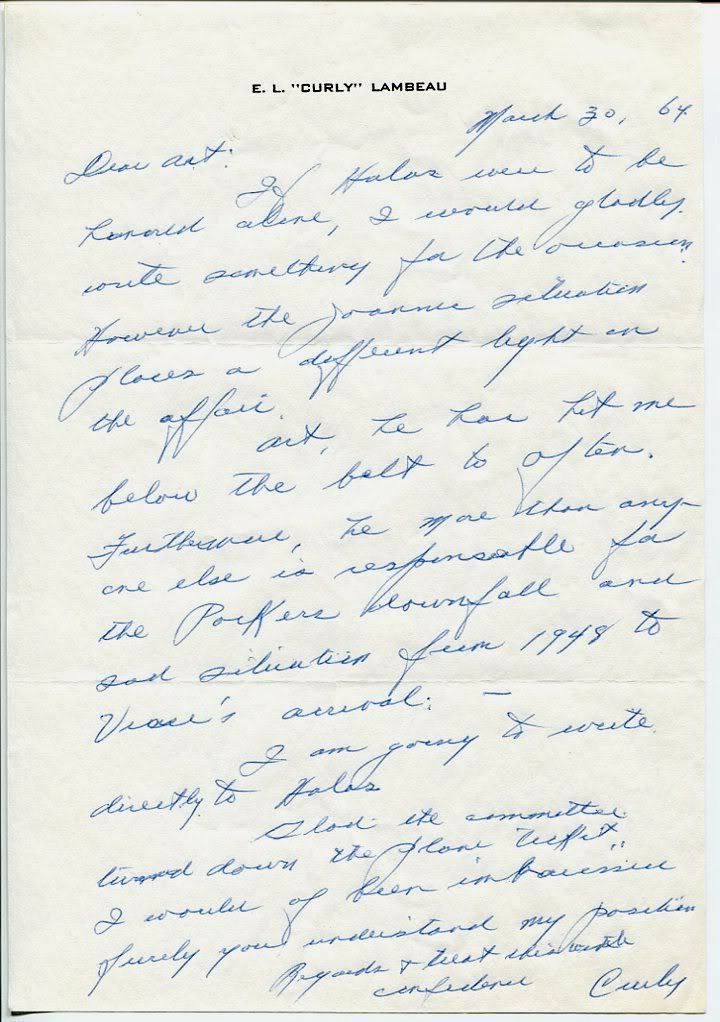 E. L. "CURLY" LAMBEAU
March 30, 64
Dear Art:
If Halas were to be
honored alone, I would gladly
write something for the occasion.
However the Joannes situation
places a different light on
the affair.
Art, he has hit me
below the belt to often.
Furthermore, he more than any-
one else is responsable for
the Packers downfall and
sad situation from 1948 to
Vince's arrival: –
I am going to write
directly to Halas
Glad the committee
turned down the plane ticket.
I would of been
Surely you understand my position
Regards & treat this with
confidence Curly